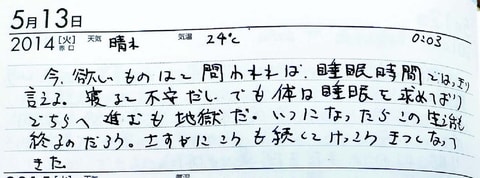 5月13日
2014 [火] 赤口 天気 晴れ 気温 24℃ 0:03
今、欲しいものはと問われれば、睡眠時間ではっきり
言える。寝ると不安だし、でも体は睡眠を求めており
どちらへ進むも地獄だ。いつになったらこの生活も
終るのだろう。さすがにこうも続くとけっこうきつくなって
きた。